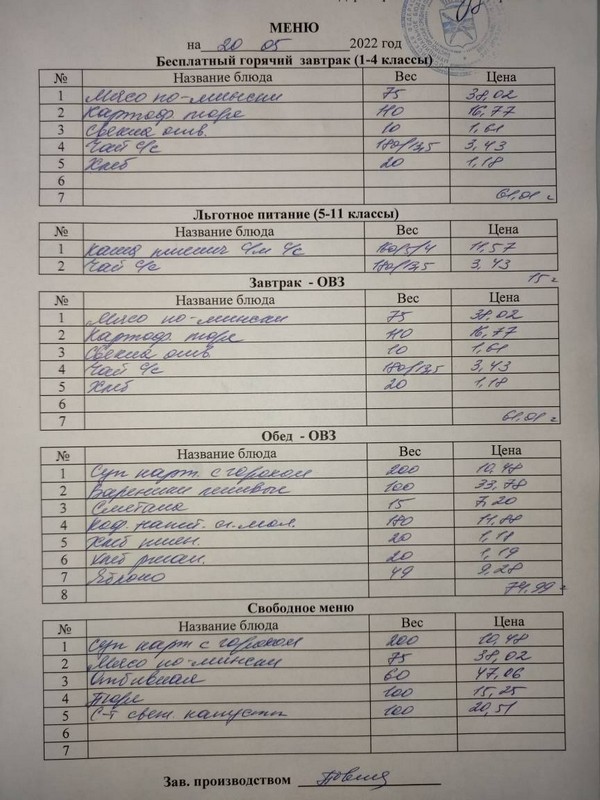 МЕНЮ
на 20 05 2022 год
Бесплатный горячий завтрак (1-4 классы)
№ Название блюда Вес Цена
1 Мясо по-мински 75 38,02
2 Картоф. пюре 110 16,77
3 Свекла отв. 10 1,61
4 Чай с/с 180/13,5 3,43
5 Хлеб 20 1,18
6
7 61,01 г
Льготное питание (5-11 классы)
№ Название блюда Вес Цена
1 Каша пшенич с/м с/с 160/5/4 11,57
2 Чай с/с 180/13,5 3,43
15 г
Завтрак - ОВЗ
№ Название блюда Вес Цена
1 Мясо по-мински 75 38,02
2 Картоф. пюре 110 16,77
3 Свекла отв 10 1,61
4 Чай с/с 180/13,5 3,43
5 Хлеб 20 1,18
6
7 61,01 г
Обед - ОВЗ
№ Название блюда Вес Цена
1 Суп карт. с горохом 200 10,48
2 Вареники ленивые 100 33,78
3 Сметана 15 7,20
4 Коф. напит. сг. мол. 180 11,88
5 Хлеб пшен. 20 1,18
6 Хлеб ржан. 20 1,19
7 Яблоко 49 9,28
8 74,99 г
Свободное меню
№ Название блюда Вес Цена
1 Суп карт с горохом 200 10,48
2 Мясо по-мински 75 38,02
3 Отбивная 60 47,06
4 Пюре 100 15,25
5 С-т свеж. капусты 100 20,51
6
7
Зав. производством